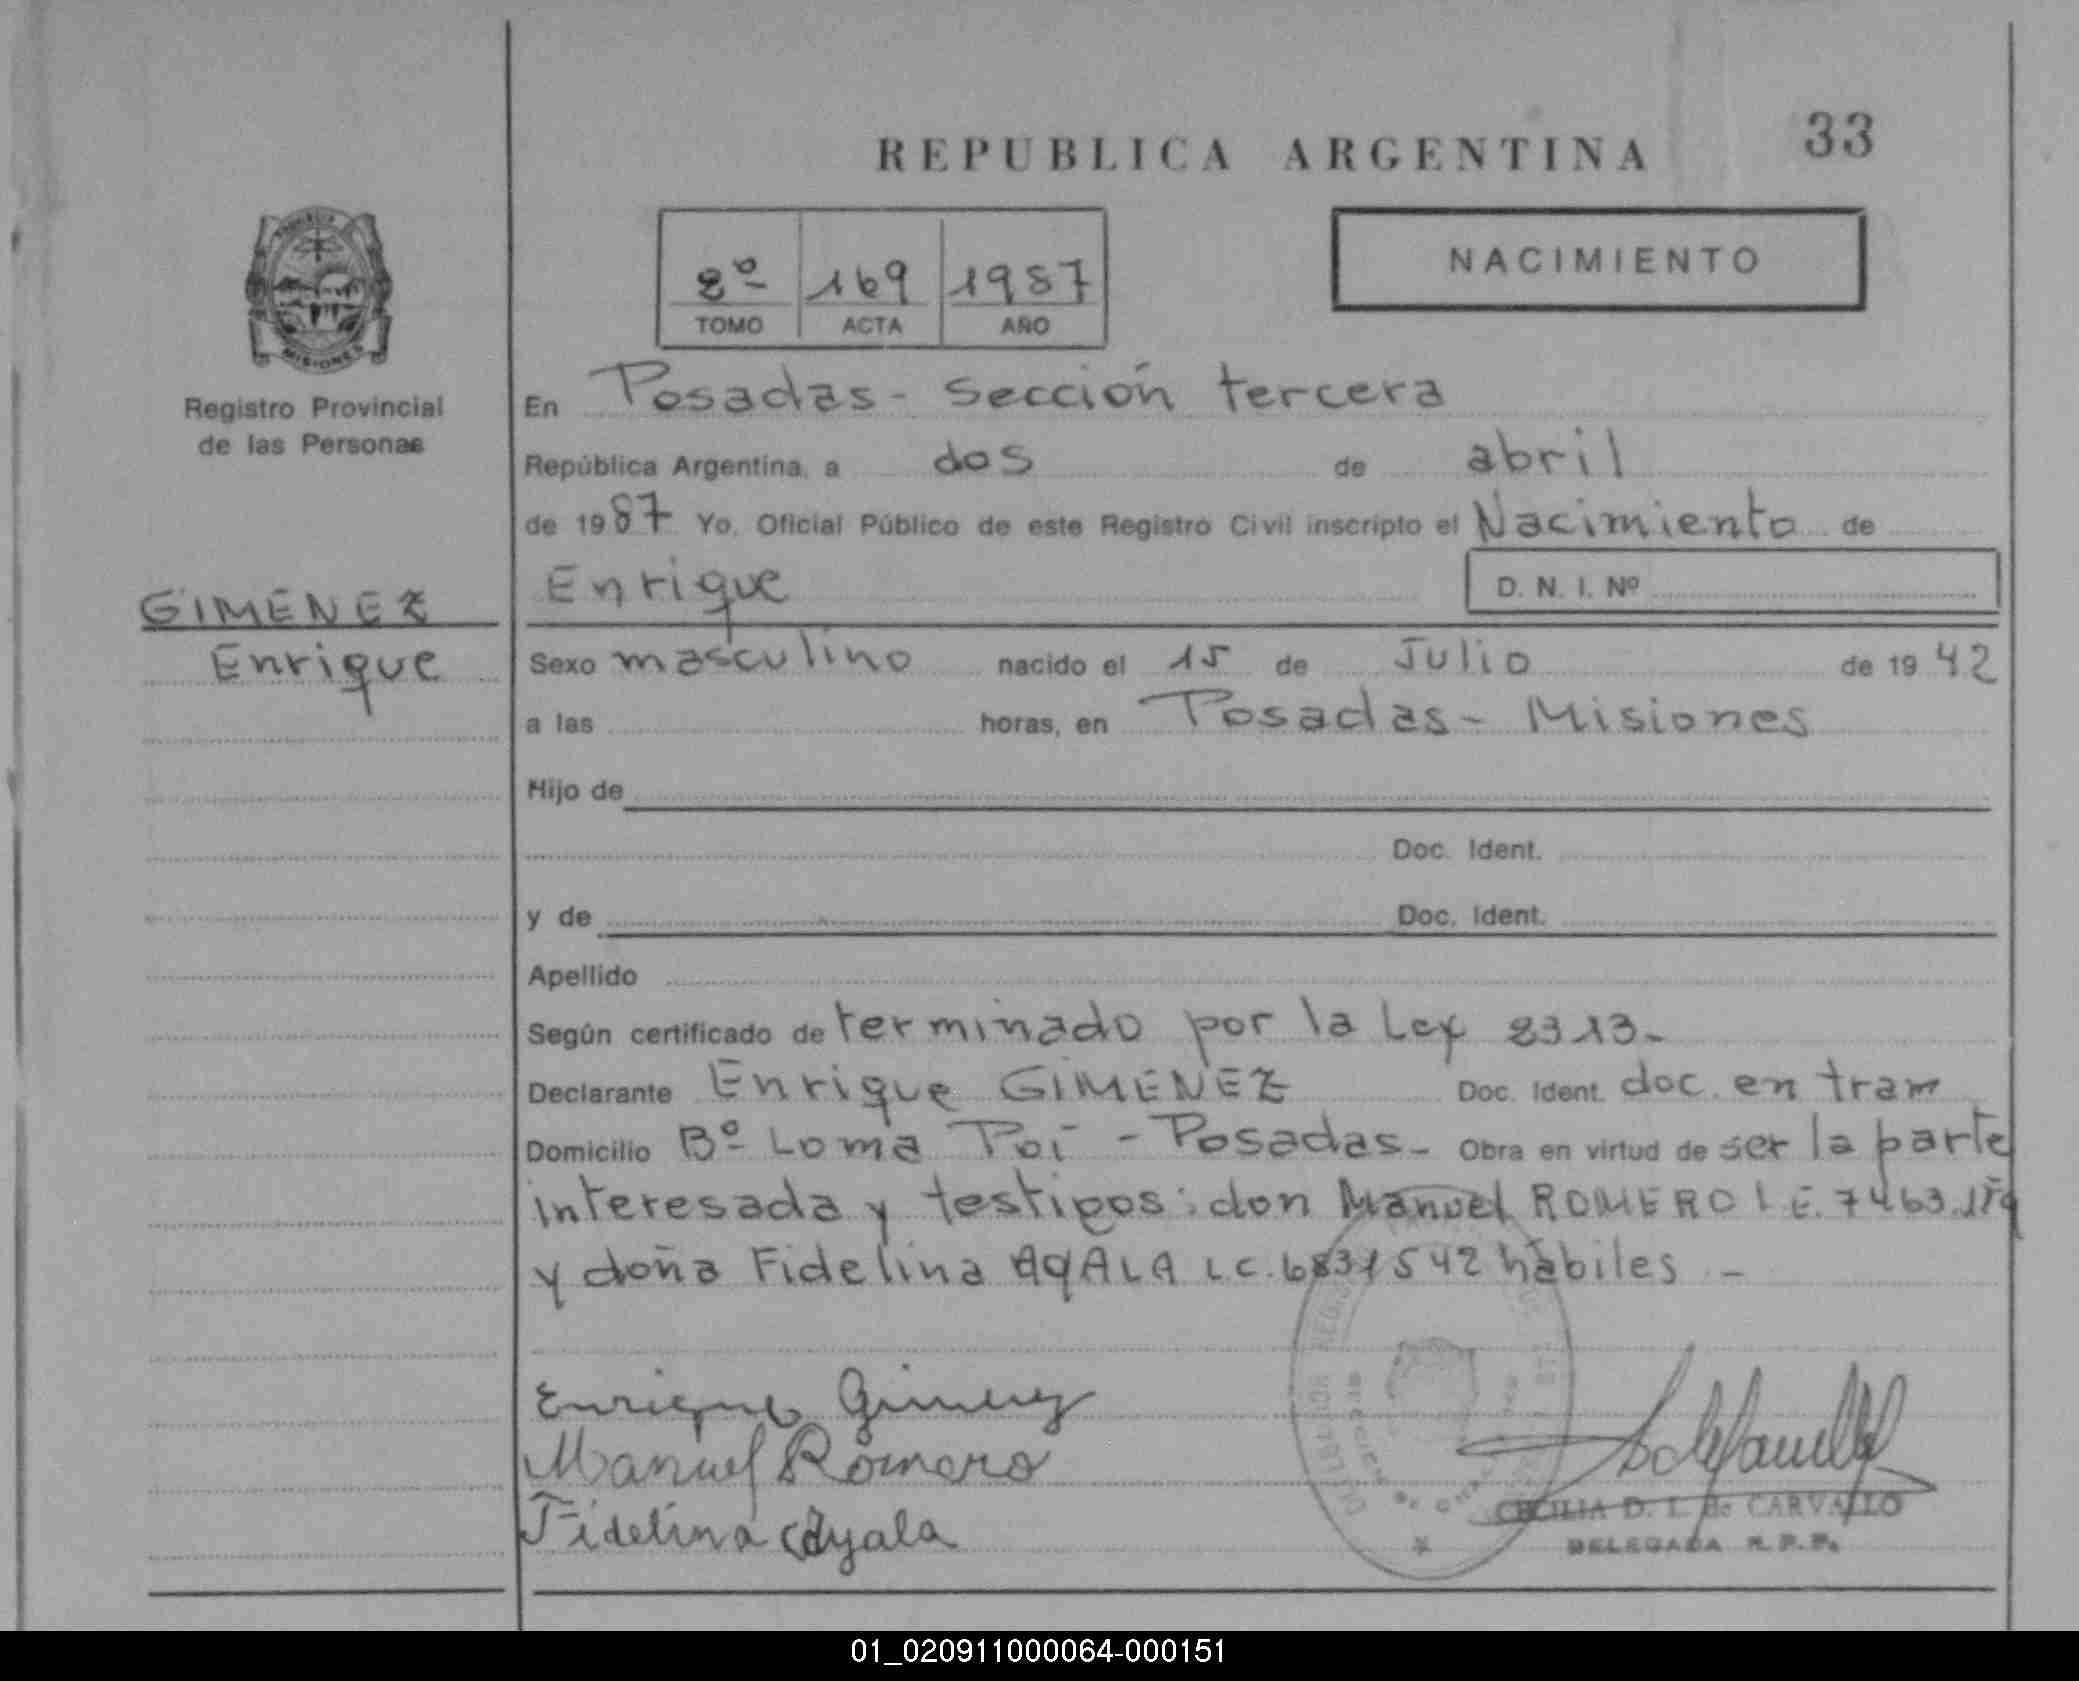 REPUBLICA ARGENTINA
33
2º 169 1987
TOMO ACTA AÑO
NACIMIENTO
MISIONES
Registro Provincial
de las Personas
GIMENEZ
Enrique
En Posadas - Sección tercera
República Argentina, a dos de abril
de 1987 Yo, Oficial Público de este Registro Civil inscripto el Nacimiento de
Enrique D. N. I. Nº
Sexo masculino nacido el 15 de Julio de 1942
a las horas, en Posadas - Misiones
Hijo de
Doc. Ident.
y de Doc. Ident.
Apellido
Según certificado de terminado por la Ley 2313-
Declarante Enrique GIMENEZ Doc. Ident. doc. en tram
Domicilio Bº Loma Poí - Posadas - Obra en virtud de ser la parte
interesada y testigos: don Manuel ROMERO L.E.
y doña Fidelina AYALA L.C. 6831542 hábiles -
Enrique Gimenez
Manuel Romero
Fidelina Ayala
CECILIA D. L. de CARVALLO
DELEGADA R. P. P.
01_020911000064-000151